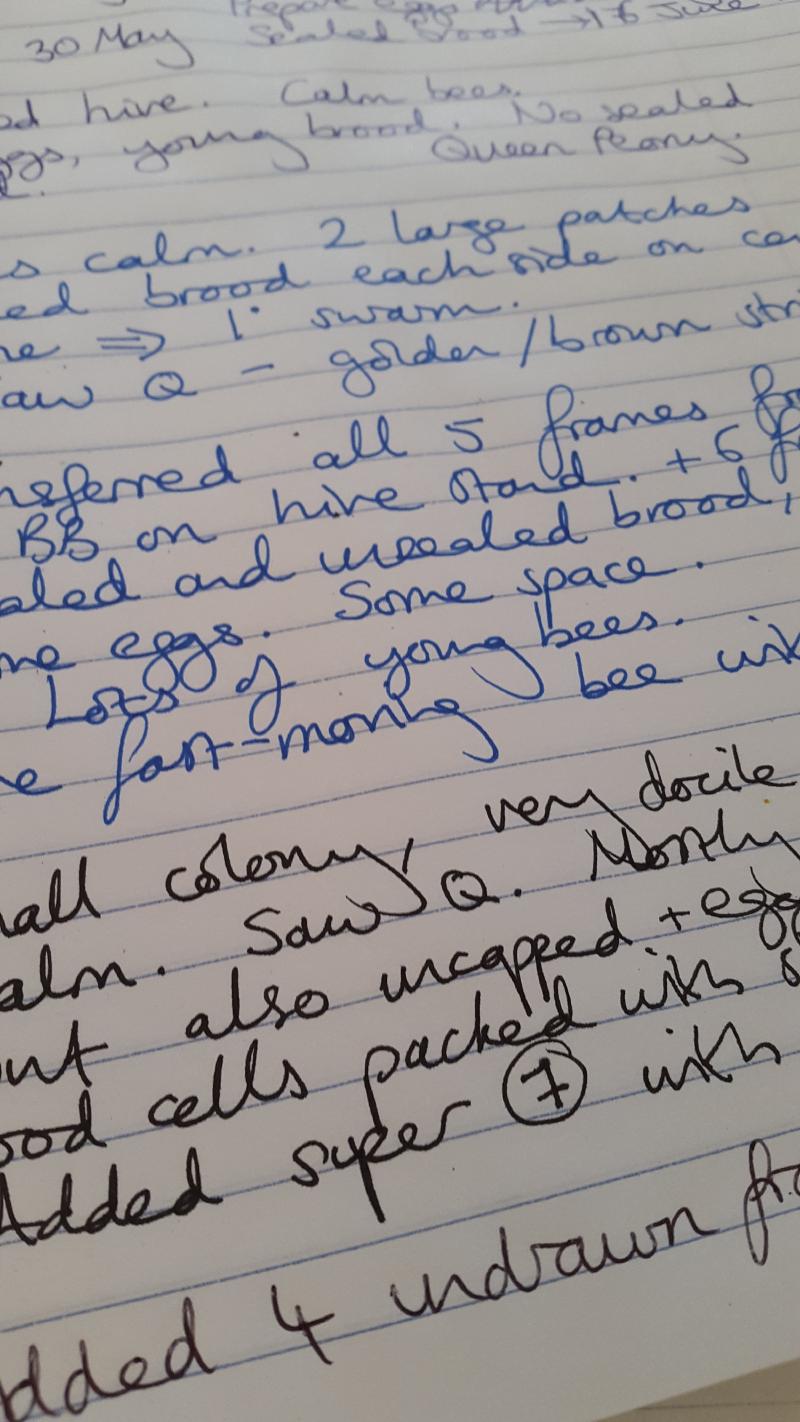 30 May
Sealed brood → 16 June
od hive. Calm bees.
ggs, young brood. No sealed
Queen Peony.
s calm. 2 large patches
ed brood each side on ce
ne ⇒ 1° swarm.
aw Q - golden/brown stri
nsferred all 5 frames fr
BB on hive stand. + 6 fr
aled and unsealed brood,
me eggs. Some space.
Lots of young bees.
e fast-moving bee with
nall colony, very docile
alm. Saw Q. Mostly
out also uncapped + egg
ood cells packed with
Added super 7 with
dded 4 undrawn fra